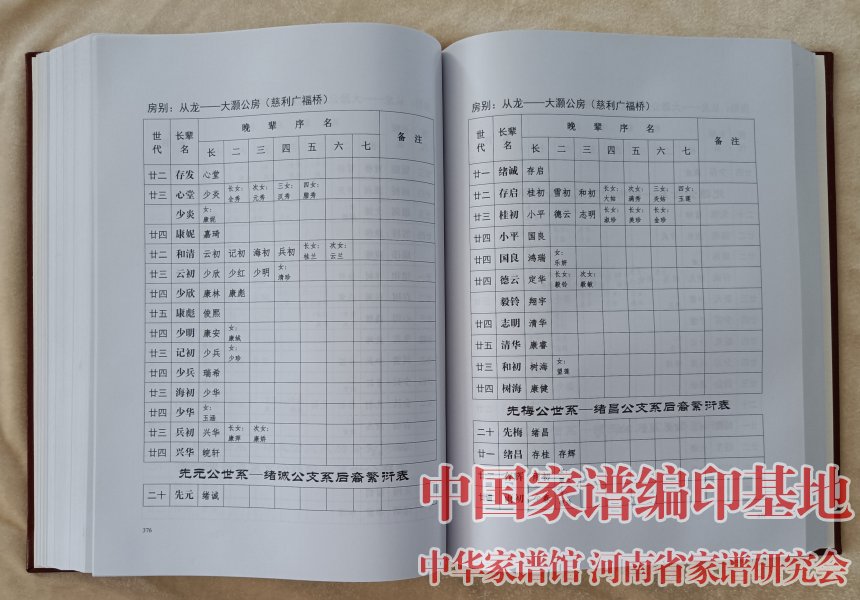 房别：从龙——大灏公房（慈利广福桥）
世代 长辈名 晚辈序名 备注
长 二 三 四 五 六 七
廿二 存发 心堂
廿三 心堂 少炎 长女： 次女： 三女： 四女：
少炎 女：康妮
廿四 康妮 嘉琦
廿二 和清 云初 记初 海初 兵初 长女：桂兰 次女：云兰
廿三 云初 少欣 少红 少明 女：清珍
廿四 少欣 康林 康彪
廿五 康彪 俊熙
廿四 少明 康安 女：康城
廿三 记初 少兵 女：少珍
廿四 少兵 瑞希
廿三 海初 少华
廿四 少华 女：玉涵
廿三 兵初 兴华 长女：康萍 次女：康娇
廿四 兴华 婉轩
先元公世系—绪诚公支系后裔繁衍表
二十 先元 绪诚
376
房别：从龙——大灏公房（慈利广福桥）
世代 长辈名 晚辈序名 备注
长 二 三 四 五 六 七
廿一 绪诚 存启
廿二 存启 桂初 雪初 和初 长女：大姑 次女：满秀 三女：炎姑 四女：玉莲
廿三 桂初 小平 德云 志明 长女：淑珍 长女：美珍 长女：金珍
廿四 小平 国良
廿四 国良 鸿瑞 女：乐妍
廿四 德云 定华 长女：毅铃 次女：毅敏
毅铃 翔宇
廿四 志明 清华
廿五 清华 康睿
廿三 和初 树海 女：望莲
廿四 树海 康健
先梅公世系—绪昌公支系后裔繁衍表
二十 先梅 绪昌
廿一 绪昌 存桂 存辉
中国家谱编印基地
中华家谱馆 河南省家谱研究会